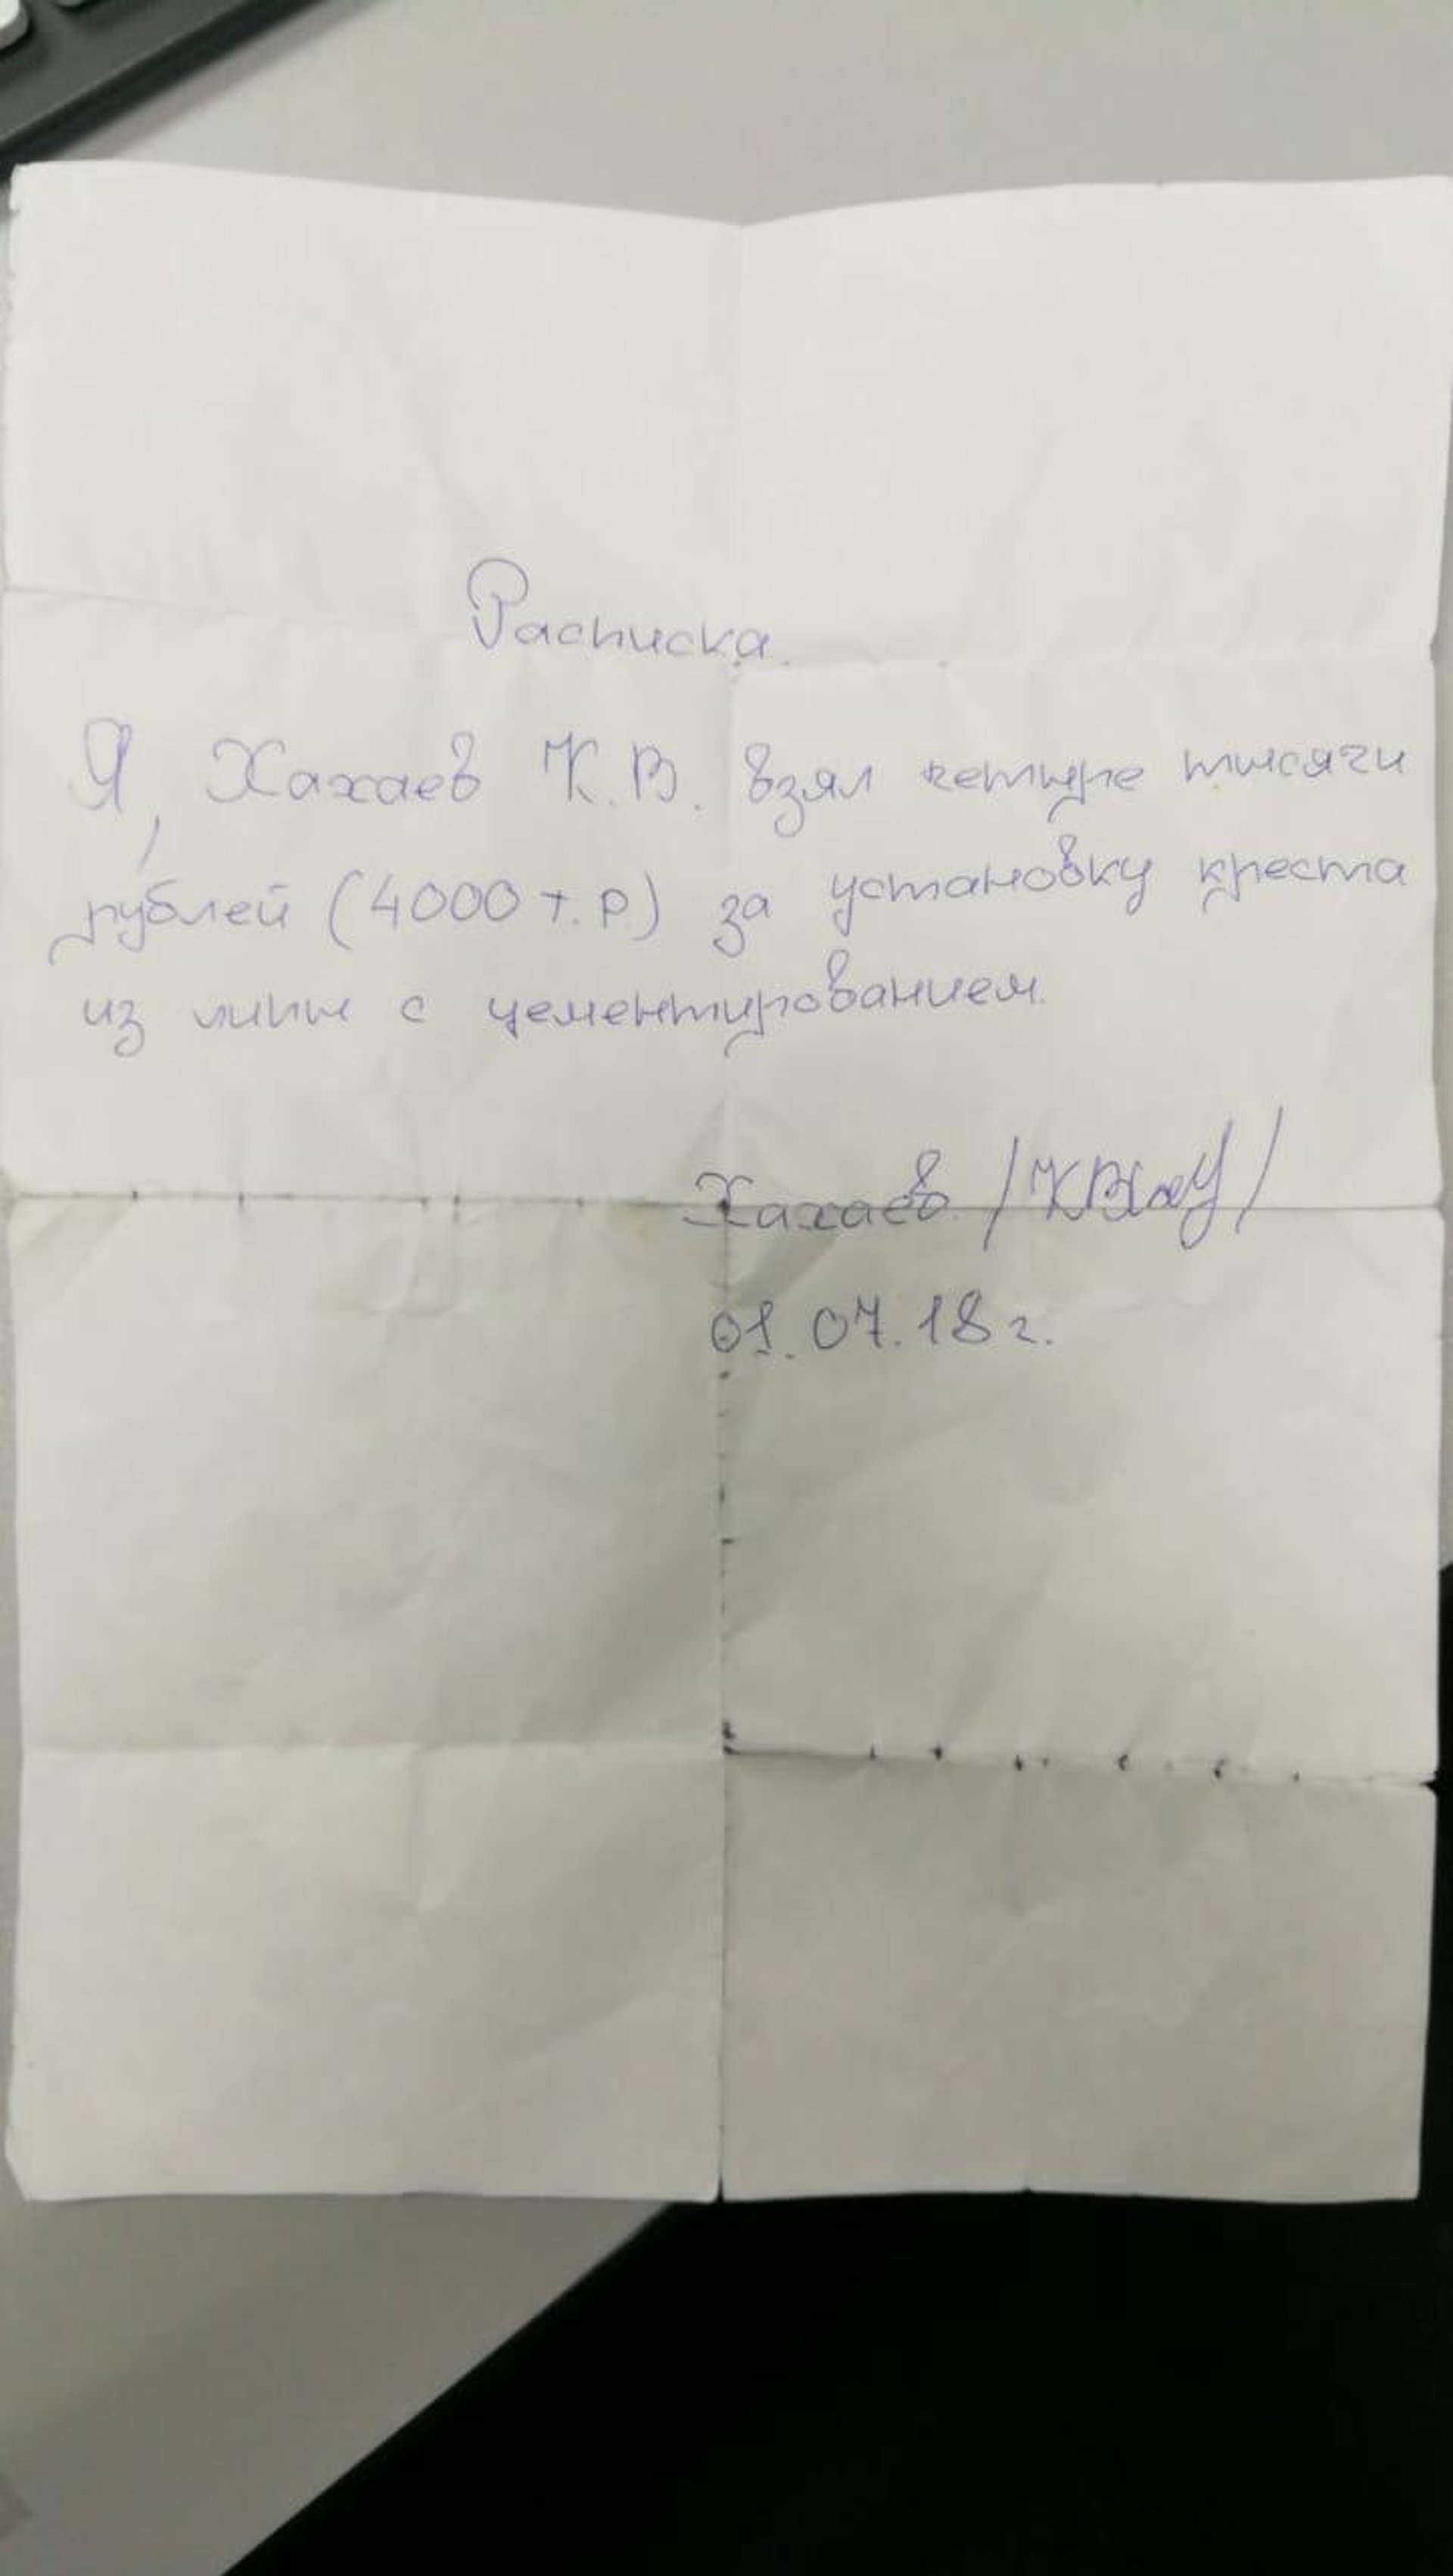 Расписка.
Я, Хахаев К.В. взял четыре тысячи
рублей (4000 т.р.) за установку креста
из липы с цементированием.
Хахаев /
01.07.18 г.